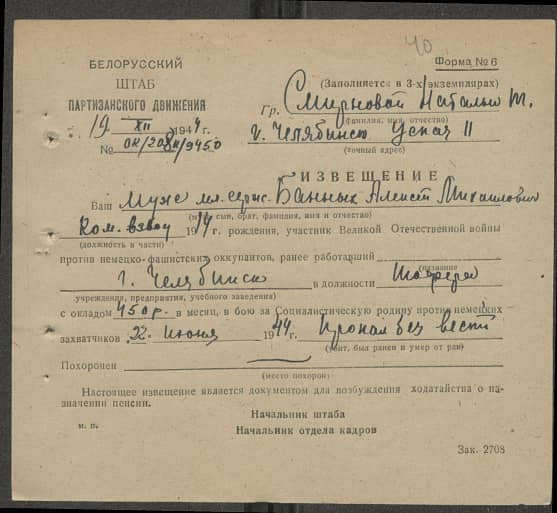 40
БЕЛОРУССКИЙ
ШТАБ
ПАРТИЗАНСКОГО ДВИЖЕНИЯ
19 XII 1944 г.
№ /9450
Форма № 6
(Заполняется в 3-х экземплярах)
Гр. Смирновой Наталье М.
(фамилия, имя, отчество)
г. Челябинск 11
(точный адрес)
ИЗВЕЩЕНИЕ
Ваш муж мл. серж. Банных Алексей Михайлович
(муж, сын, брат, фамилия, имя и отчество)
Ком. взвод 1914 г. рождения, участник Великой Отечественной войны
(должность в части)
против немецко-фашистских оккупантов, ранее работавший
(название
г. Челябинск в должности Шофера
учреждения, предприятия, учебного заведения)
с окладом 450 р. в месяц, в бою за Социалистическую родину против немецких
захватчиков 22 июня 1944 г. Пропал без вести
(убит, был ранен и умер от ран)
Похоронен
(место похорон)
Настоящее извещение является документом для возбуждения ходатайства о на-
значении пенсии.
Начальник штаба
м. п.
Начальник отдела кадров
Зак. 2708